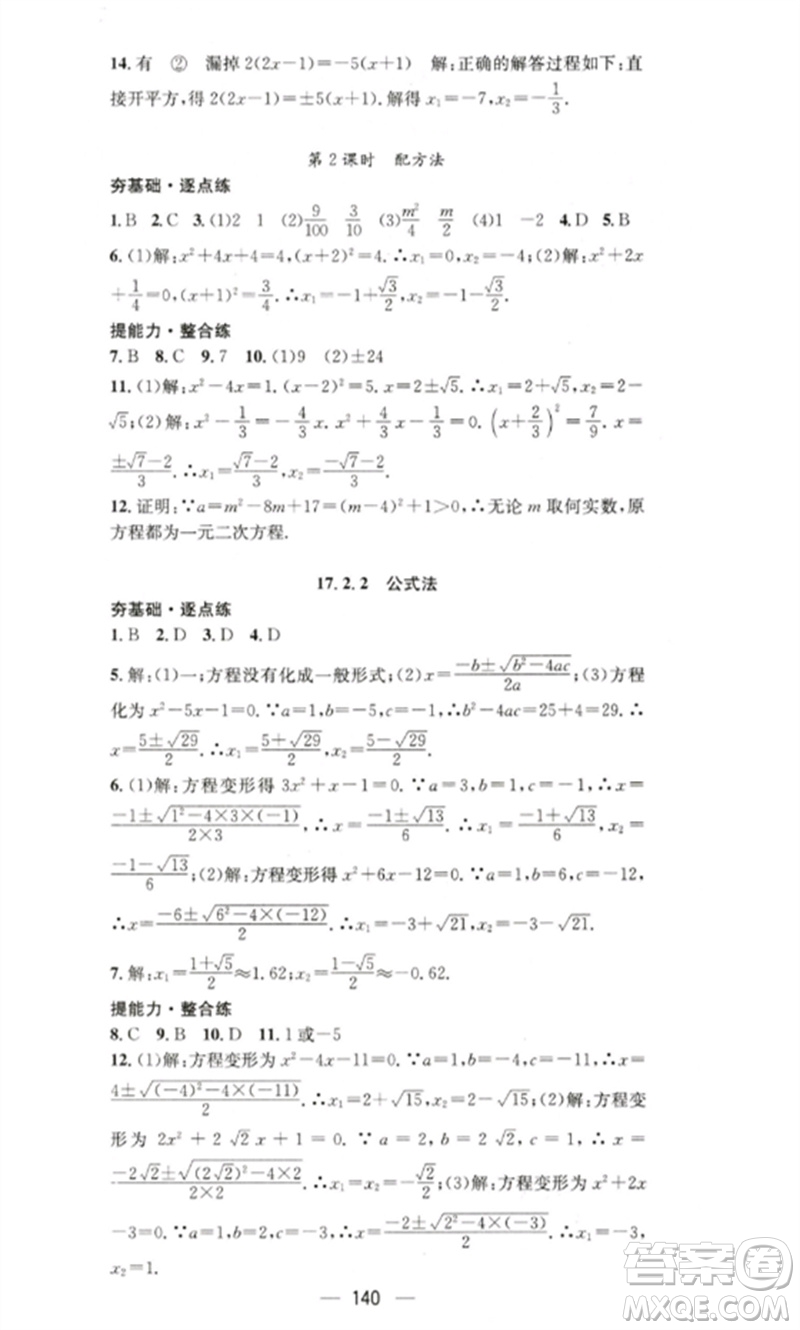 14. 有 ② 漏掉 2(2x-1)=-5(x+1) 解:正确的解答过程如下:直
接开平方,得 2(2x-1)=±5(x+1). 解得 x₁=-7, x₂=-1/3.
第2课时 配方法
夯基础·逐点练
1. B 2. C 3. (1)2 1 (2)9/100 3/10 (3)m²/4 m/2 (4)1 -2 4. D 5. B
6. (1)解:x²+4x+4=4,(x+2)²=4. ∴x₁=0,x₂=-4;(2)解:x²+2x
+1/4=0,(x+1)²=3/4. ∴x₁=-1+√3/2,x₂=-1-√3/2.
提能力·整合练
7. B 8. C 9. 7 10. (1)9 (2)±24
11. (1)解:x²-4x=1. (x-2)²=5. x=2±√5. ∴x₁=2+√5,x₂=2-
√5;(2)解:x²-1/3=-4/3x. x²+4/3x-1/3=0. (x+2/3)²=7/9. x=
(±√7-2)/3. ∴x₁=(√7-2)/3,x₂=(-√7-2)/3.
12. 证明:∵a=m²-8m+17=(m-4)²+1>0,∴无论 m 取何实数,原
方程都为一元二次方程.
17.2.2 公式法
夯基础·逐点练
1. B 2. D 3. D 4. D
5. 解:(1)一;方程没有化成一般形式;(2)x=(-b±√(b²-4ac))/2a;(3)方程
化为 x²-5x-1=0. ∵a=1,b=-5,c=-1,∴b²-4ac=25+4=29. ∴
x=(5±√29)/2. ∴x₁=(5+√29)/2,x₂=(5-√29)/2.
6. (1)解:方程变形得 3x²+x-1=0. ∵a=3,b=1,c=-1,∴x=
(-1±√(1²-4×3×(-1)))/(2×3). ∴x=(-1±√13)/6. ∴x₁=(-1+√13)/6,x₂=
(-1-√13)/6;(2)解:方程变形得 x²+6x-12=0. ∵a=1,b=6,c=-12,
∴x=(-6±√(6²-4×(-12)))/2. ∴x₁=-3+√21,x₂=-3-√21.
7. 解:x₁=(1+√5)/2≈1.62;x₂=(1-√5)/2≈-0.62.
提能力·整合练
8. C 9. B 10. D 11. 1或-5
12. (1)解:方程变形为 x²-4x-11=0. ∵a=1,b=-4,c=-11,∴x=
(4±√((-4)²-4×(-11)))/2. ∴x₁=2+√15,x₂=2-√15;(2)解:方程变
形为 2x²+2√2x+1=0. ∵a=2,b=2√2,c=1,∴x=
(-2√2±√((2√2)²-4×2))/(2×2). ∴x₁=x₂=-√2/2;(3)解:方程变形为 x²+2x
-3=0. ∵a=1,b=2,c=-3,∴x=(-2±√(2²-4×(-3)))/2. ∴x₁=-3,
x₂=1.
— 140 —
答案圈
MXQE.COM